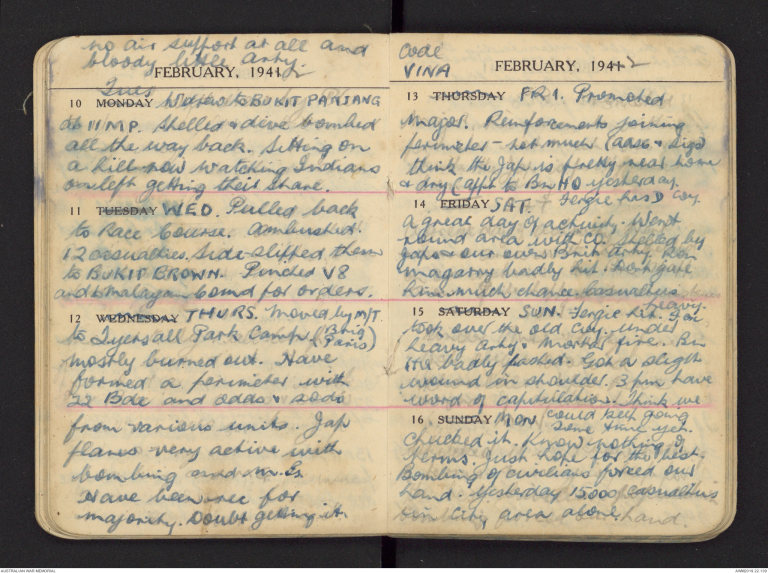 no air support at all and
bloody little Arty.
FEBRUARY, 1941 2
Tues
10 MONDAY Withdrew to BUKIT PANJANG
at 11 M.P. Shelled & dive bombed
all the way back. Sitting on
a hill now watching Indians
on left getting their share.
11 TUESDAY WED. Pulled back
to Race Course. Ambushed.
12 casualties. Side-slipped them
to BUKIT BROWN. Pinched V8
and to Malayan Comd for orders.
12 WEDNESDAY THURS. Moved by M/T.
to Tyersall Park Camp (Brig Paris)
mostly burned out. Have
formed a perimeter with
22 Bde and odds & sods
from various units. Jap
planes very active with
bombing and M.Gs
Have been rec for
majority. Doubt getting it.
Code
VINA
FEBRUARY, 1941 2
13 THURSDAY FRI. Promoted
Major. Reinforcements joining
perimeter - not much (AASC & Sigs)
think the Jap is pretty near home
& dry (Appt to Bn HQ yesterday.
14 FRIDAY SAT. Fergie has D Coy.
a great day of activity. Went
round area with CO. Shelled by
Japs & our own Brit Arty. Ron
magarry badly hit. Don't give
him much chance. Casualties
heavy.
15 SATURDAY SUN. Fergie hit. I
took over the old Coy. under
heavy Arty & Mortar fire. Bn
HQ badly pasted. Got a slight
wound in shoulder. 3 pm have
word of capitulation. Think we
16 SUNDAY MON (could keep going
some time yet.
chucked it. Know nothing of
terms. Just hope for the best.
Bombing of civilians forced our
hand. Yesterday 15000 casualties
in city area alone.
AUSTRALIAN WAR MEMORIAL